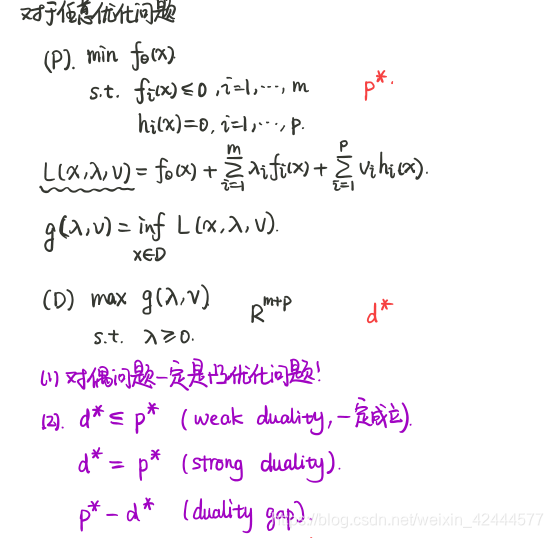 对于任意优化问题
(P). min f₀(x)
s.t. fᵢ(x) ≤ 0, i=1, ⋯, m
p*.
hᵢ(x)=0, i=1, ⋯, p.
L(x,λ,ν) = f₀(x) + ∑ᵢ₌₁ᵐ λᵢfᵢ(x) + ∑ᵢ₌₁ᵖ νᵢhᵢ(x).
g(λ,ν) = inf L(x,λ,ν).
x∈D
(D) max g(λ,ν) Rᵐ⁺ᵖ d*
s.t. λ≥0.
(1) 对偶问题一定是凸优化问题!
(2). d* ≤ p* (weak duality, 一定成立).
d* = p* (strong duality).
p* - d* (duality gap).
https://blog.csdn.net/weixin_42444577